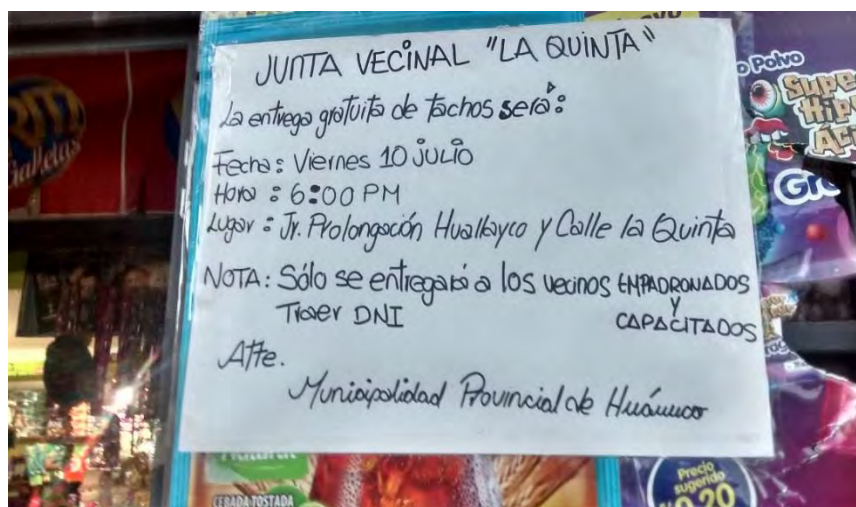 JUNTA VECINAL "LA QUINTA"
La entrega gratuita de tachos será:
Fecha: Viernes 10 JULIO
Hora: 6:00 PM
Lugar: Jr. Prolongación Huallayco y Calle la Quinta
NOTA: Sólo se entregará a los vecinos EMPADRONADOS
Y
Traer DNI CAPACITADOS
Atte.
Municipalidad Provincial de Huánuco
o Polvo
Super
Galletas
Gr
Natural
CEBADA TOSTADA
Precio
sugerido
0.20